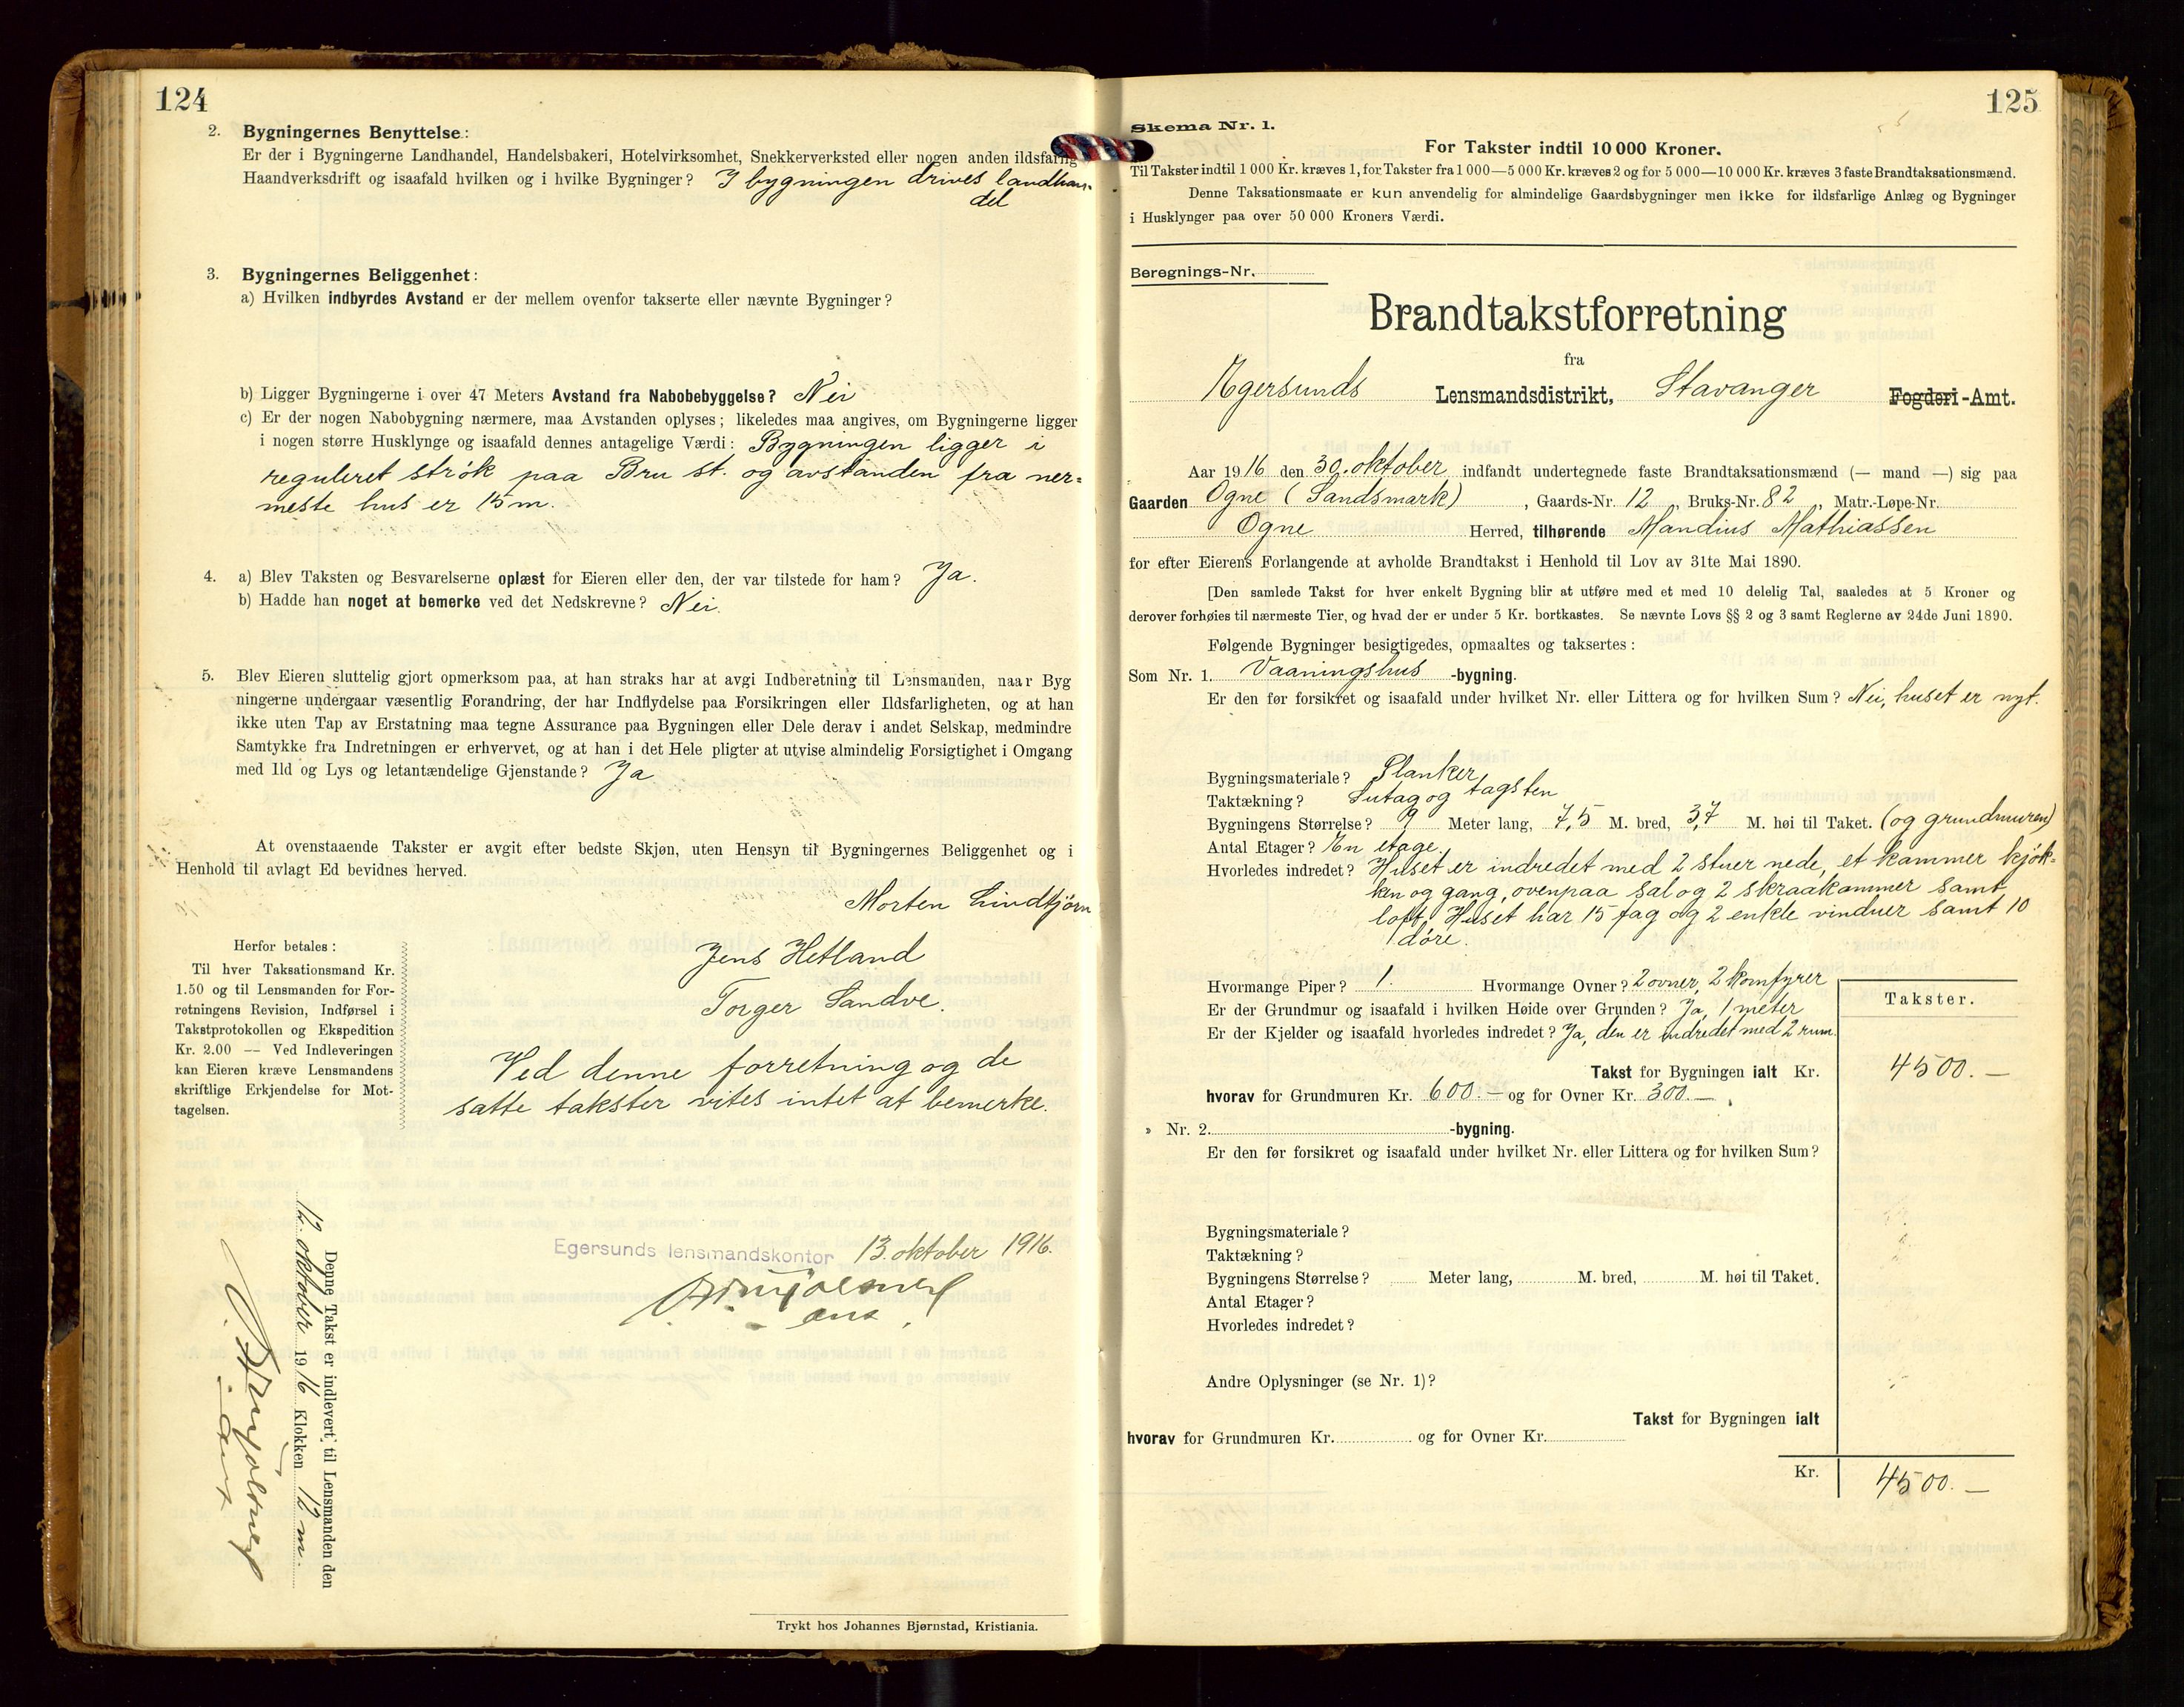 124
2. Bygningernes Benyttelse:
Er der i Bygningerne Landhandel, Handelsbakeri, Hotelvirksomhet, Snekkerverksted eller nogen anden ildsfarlig
Haandverksdrift og isaafald hvilken og i hvilke Bygninger? I bygningen drives landhan-
del
3. Bygningernes Beliggenhet:
a) Hvilken indbyrdes Avstand er der mellem ovenfor takserte eller nævnte Bygninger?
b) Ligger Bygningerne i over 47 Meters Avstand fra Nabobebyggelse? Nei
c) Er der nogen Nabobygning nærmere, maa Avstanden oplyses; likeledes maa angives, om Bygningerne ligger
i nogen større Husklynge og isaafald dennes antagelige Værdi: Bygningen ligger i
reguleret strøk paa Bru st. og avstanden fra ner=
meste hus er 15 m.
4. a) Blev Taksten og Besvarelserne oplæst for Eieren eller den, der var tilstede for ham? Ja.
b) Hadde han noget at bemerke ved det Nedskrevne? Nei.
5. Blev Eieren sluttelig gjort opmerksom paa, at han straks har at avgi Indberetning til Lensmanden, naar Byg
ningerne undergaar væsentlig Forandring, der har Indflydelse paa Forsikringen eller Ildsfarligheten, og at han
ikke uten Tap av Erstatning maa tegne Assurance paa Bygningen eller Dele derav i andet Selskap, medmindre
Samtykke fra Indretningen er erhvervet, og at han i det Hele pligter at utvise almindelig Forsigtighet i Omgang
med Ild og Lys og letantændelige Gjenstande? Ja
At ovenstaaende Takster er avgit efter bedste Skjøn, uten Hensyn til Bygningernes Beliggenhet og i
Henhold til avlagt Ed bevidnes herved.
Morten Lindtjörn
Jens Hetland
Torger Sandve.
Herfor betales:
Til hver Taksationsmand Kr.
1.50 og til Lensmanden for For-
retningens Revision, Indførsel i
Takstprotokollen og Ekspedition
Kr. 2.00 — Ved Indleveringen
kan Eieren kræve Lensmandens
skriftlige Erkjendelse for Mot-
tagelsen.
Ved denne forretning og de
satte takster vites intet at bemerke.
Egersunds lensmandskontor 13. oktober 1916.
Denne Takst er indlevert til Lensmanden den
12. oktober 1916 Klokken 12 m.
Trykt hos Johannes Bjørnstad, Kristiania.
125
Skema Nr. 1.
For Takster indtil 10 000 Kroner.
Til Takster indtil 1 000 Kr. kræves 1, for Takster fra 1 000—5 000 Kr. kræves 2 og for 5 000—10 000 Kr. kræves 3 faste Brandtaksationsmænd.
Denne Taksationsmaate er kun anvendelig for almindelige Gaardsbygninger men ikke for ildsfarlige Anlæg og Bygninger
i Husklynger paa over 50 000 Kroners Værdi.
Beregnings-Nr.
Brandtakstforretning
fra
Egersunds Lensmandsdistrikt, Stavanger Fogderi-Amt.
Aar 1916 den 30. oktober indfandt undertegnede faste Brandtaksationsmænd (— mand —) sig paa
Gaarden Ogne (Sandsmark), Gaards-Nr. 12, Bruks-Nr. 82, Matr.-Løpe-Nr.
Ogne Herred, tilhørende Mandius Mathiassen
for efter Eierens Forlangende at avholde Brandtakst i Henhold til Lov av 31te Mai 1890.
[Den samlede Takst for hver enkelt Bygning blir at utføre med et med 10 delelig Tal, saaledes at 5 Kroner og
derover forhøies til nærmeste Tier, og hvad der er under 5 Kr. bortkastes. Se nævnte Lovs §§ 2 og 3 samt Reglerne av 24de Juni 1890.
Følgende Bygninger besigtigedes, opmaaltes og taksertes:
Som Nr. 1. Vaaningshus -bygning.
Er den før forsikret og isaafald under hvilket Nr. eller Littera og for hvilken Sum? Nei, huset er nyt.
Bygningsmateriale? Planker
Taktækning? Sutag og tagsten
Bygningens Størrelse? 9 Meter lang, 7,5 M. bred, 3,7 M. høi til Taket. (og grundmuren)
Antal Etager? En etage.
Hvorledes indredet? Huset er indredet med 2 stuer nede, et kammer kjök=
ken og gang, ovenpaa sal og 2 skraakammer samt
loft. Huset har 15 fag og 2 enkle vinduer samt 10
döre.
Hvormange Piper? 1. Hvormange Ovner? 2 ovner, 2 komfyrer
Er der Grundmur og isaafald i hvilken Høide over Grunden? Ja, 1 meter
Er der Kjelder og isaafald hvorledes indredet? Ja, den er indredet med 2 rum.
Takster.
Takst for Bygningen ialt Kr. 4500.—
hvorav for Grundmuren Kr. 600.— og for Ovner Kr. 300.—.
» Nr. 2. -bygning.
Er den før forsikret og isaafald under hvilket Nr. eller Littera og for hvilken Sum?
Bygningsmateriale?
Taktækning?
Bygningens Størrelse? Meter lang, M. bred, M. høi til Taket.
Antal Etager?
Hvorledes indredet?
Andre Oplysninger (se Nr. 1)?
Takst for Bygningen ialt
hvorav for Grundmuren Kr. og for Ovner Kr.
Kr. 4500.—